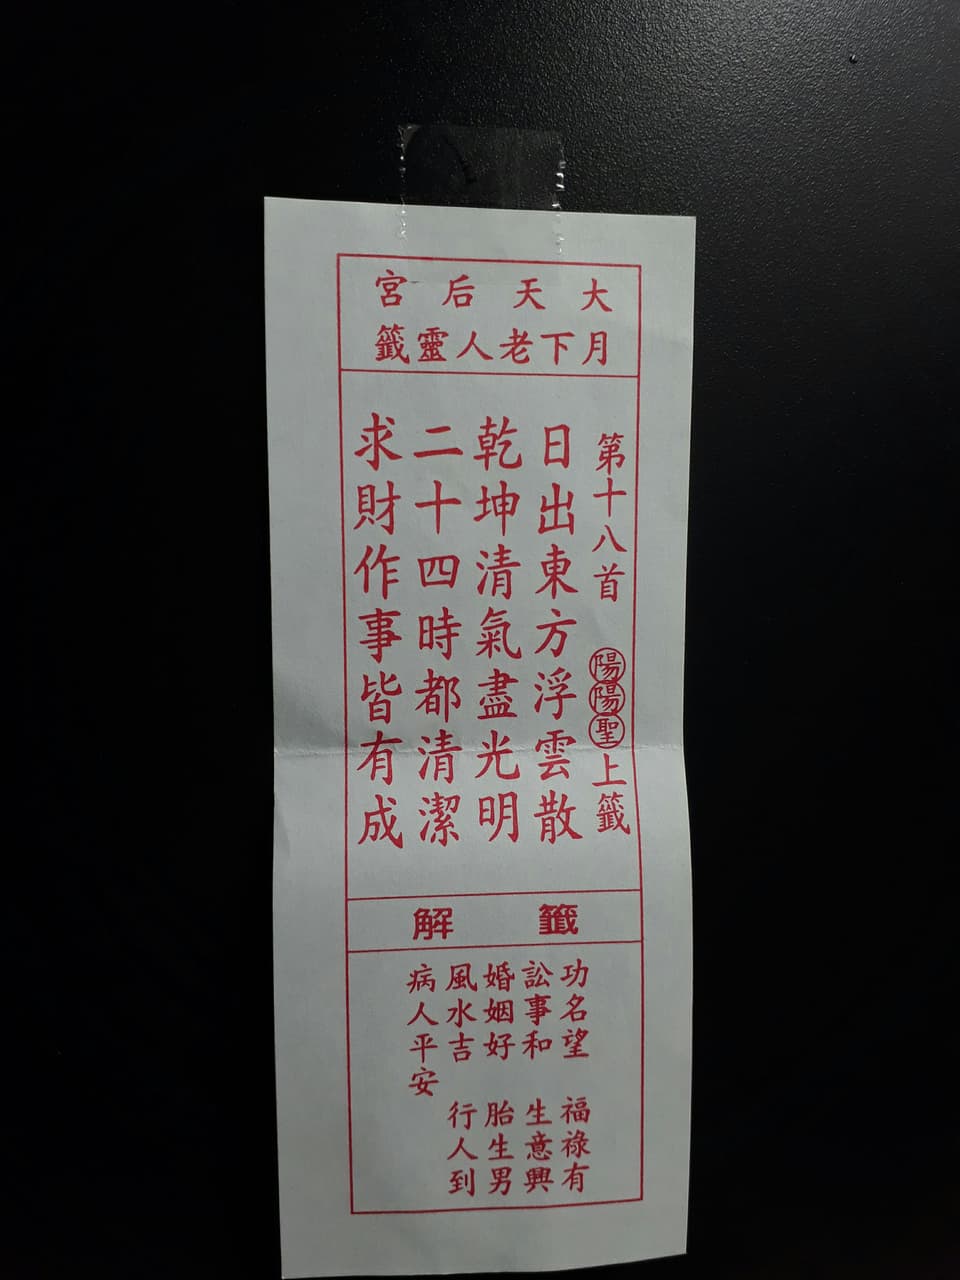 大天后宮
月下老人靈籤
第十八首 陽陽聖 上籤
日出東方浮雲散
乾坤清氣盡光明
二十四時都清潔
求財作事皆有成
籤解
功名望 福祿有
訟事和 生意興
婚姻好 胎生男
風水吉 行人到
病人平安